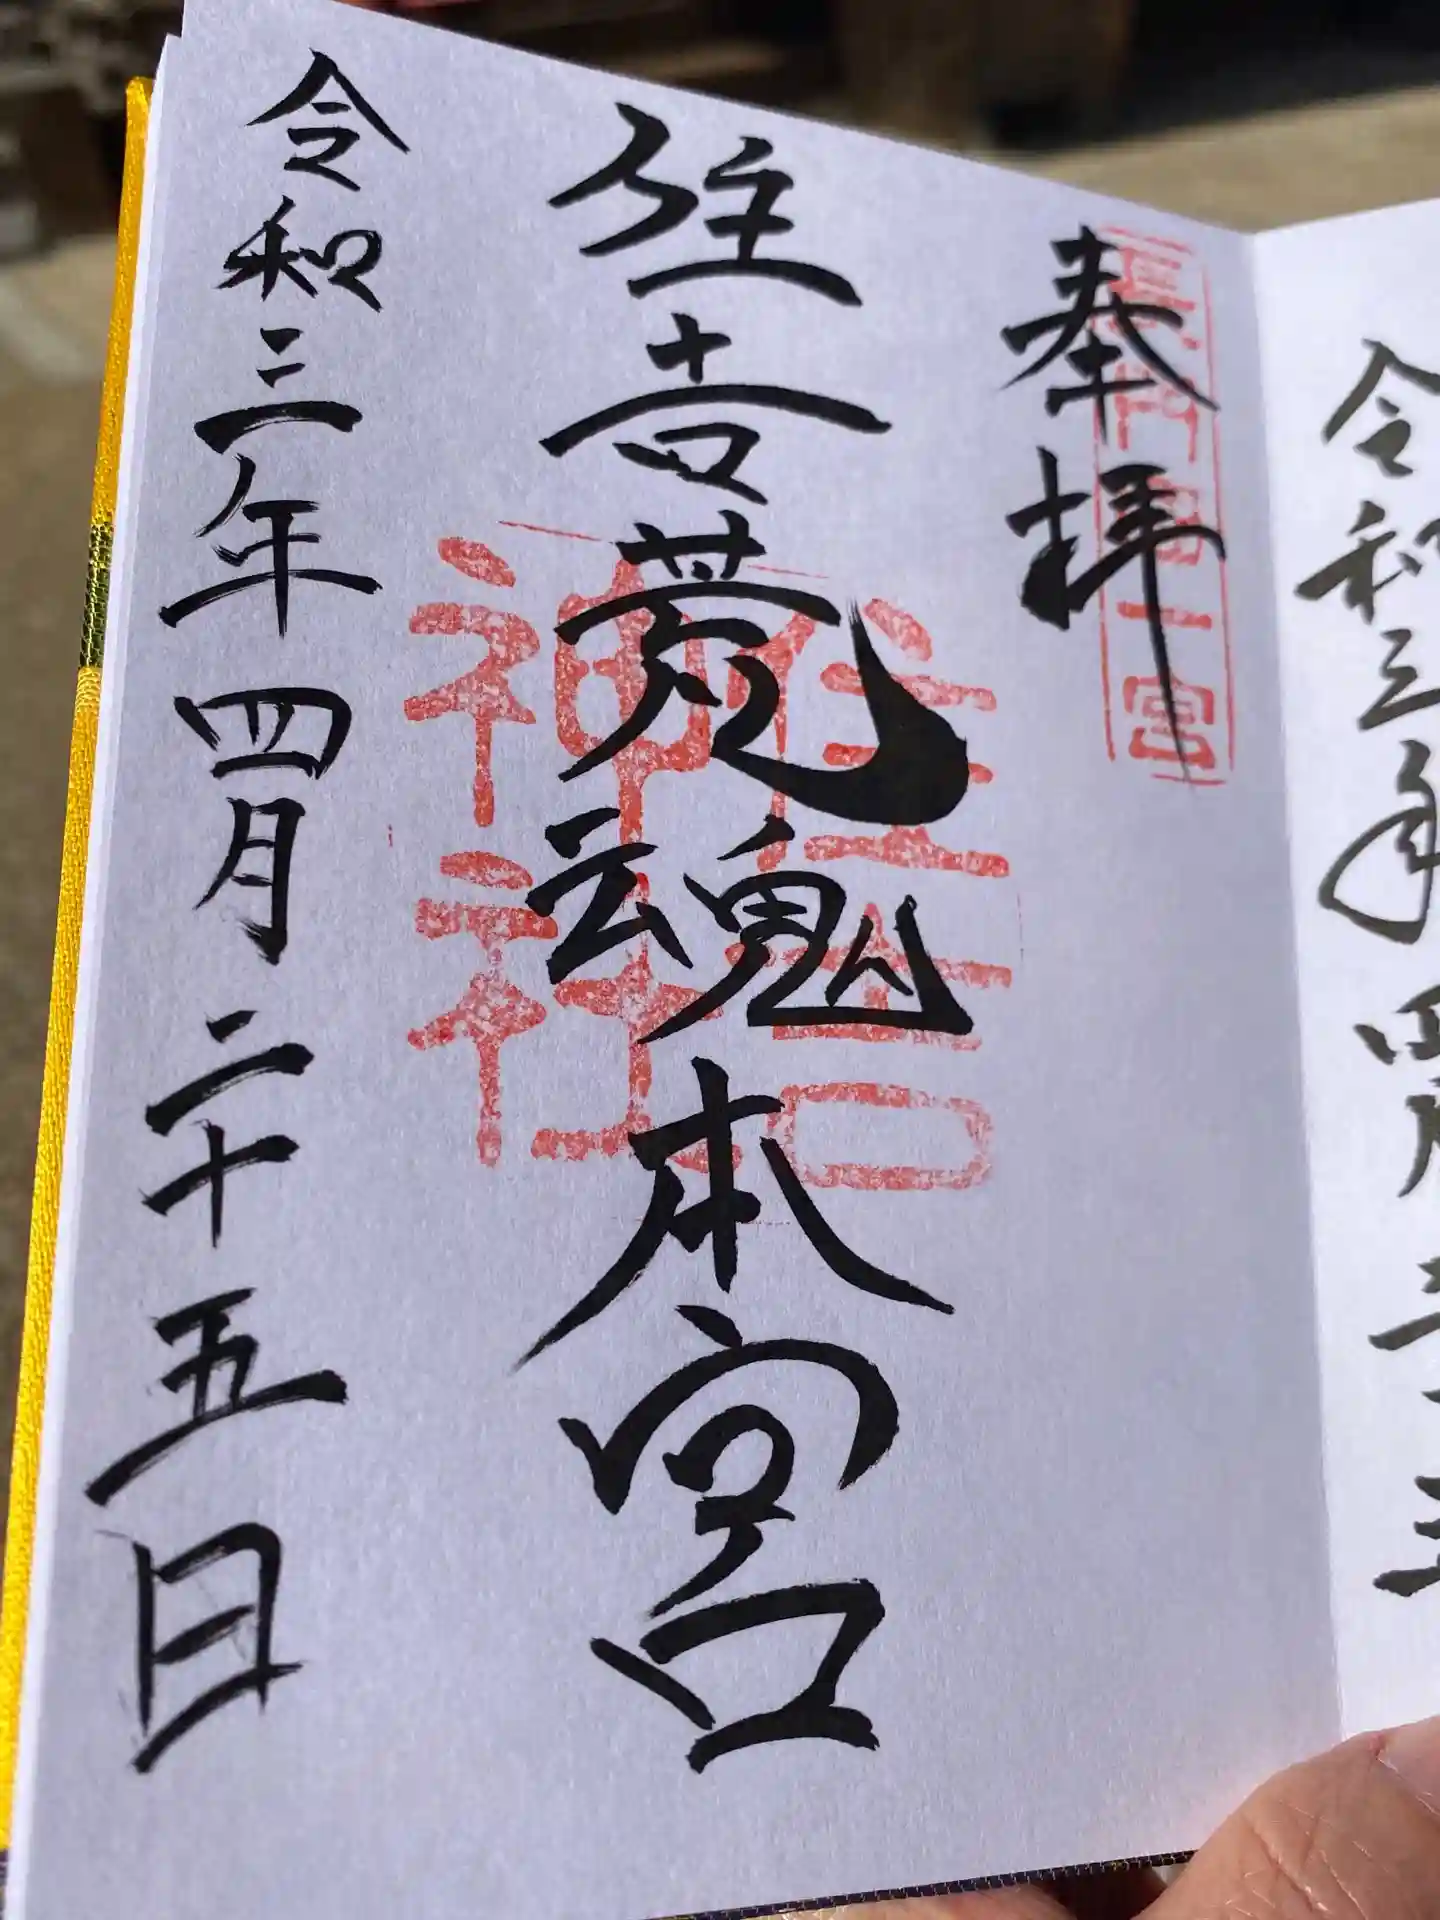 奉拝
長門國一宮
住吉荒魂本宮
住吉
神社
令和三年四月二十五日
令和三年四月二十五